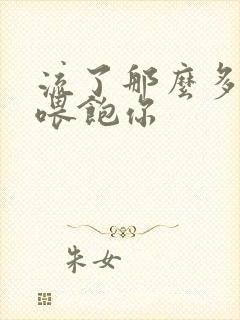 流了那麼多
喂飽你
朱女